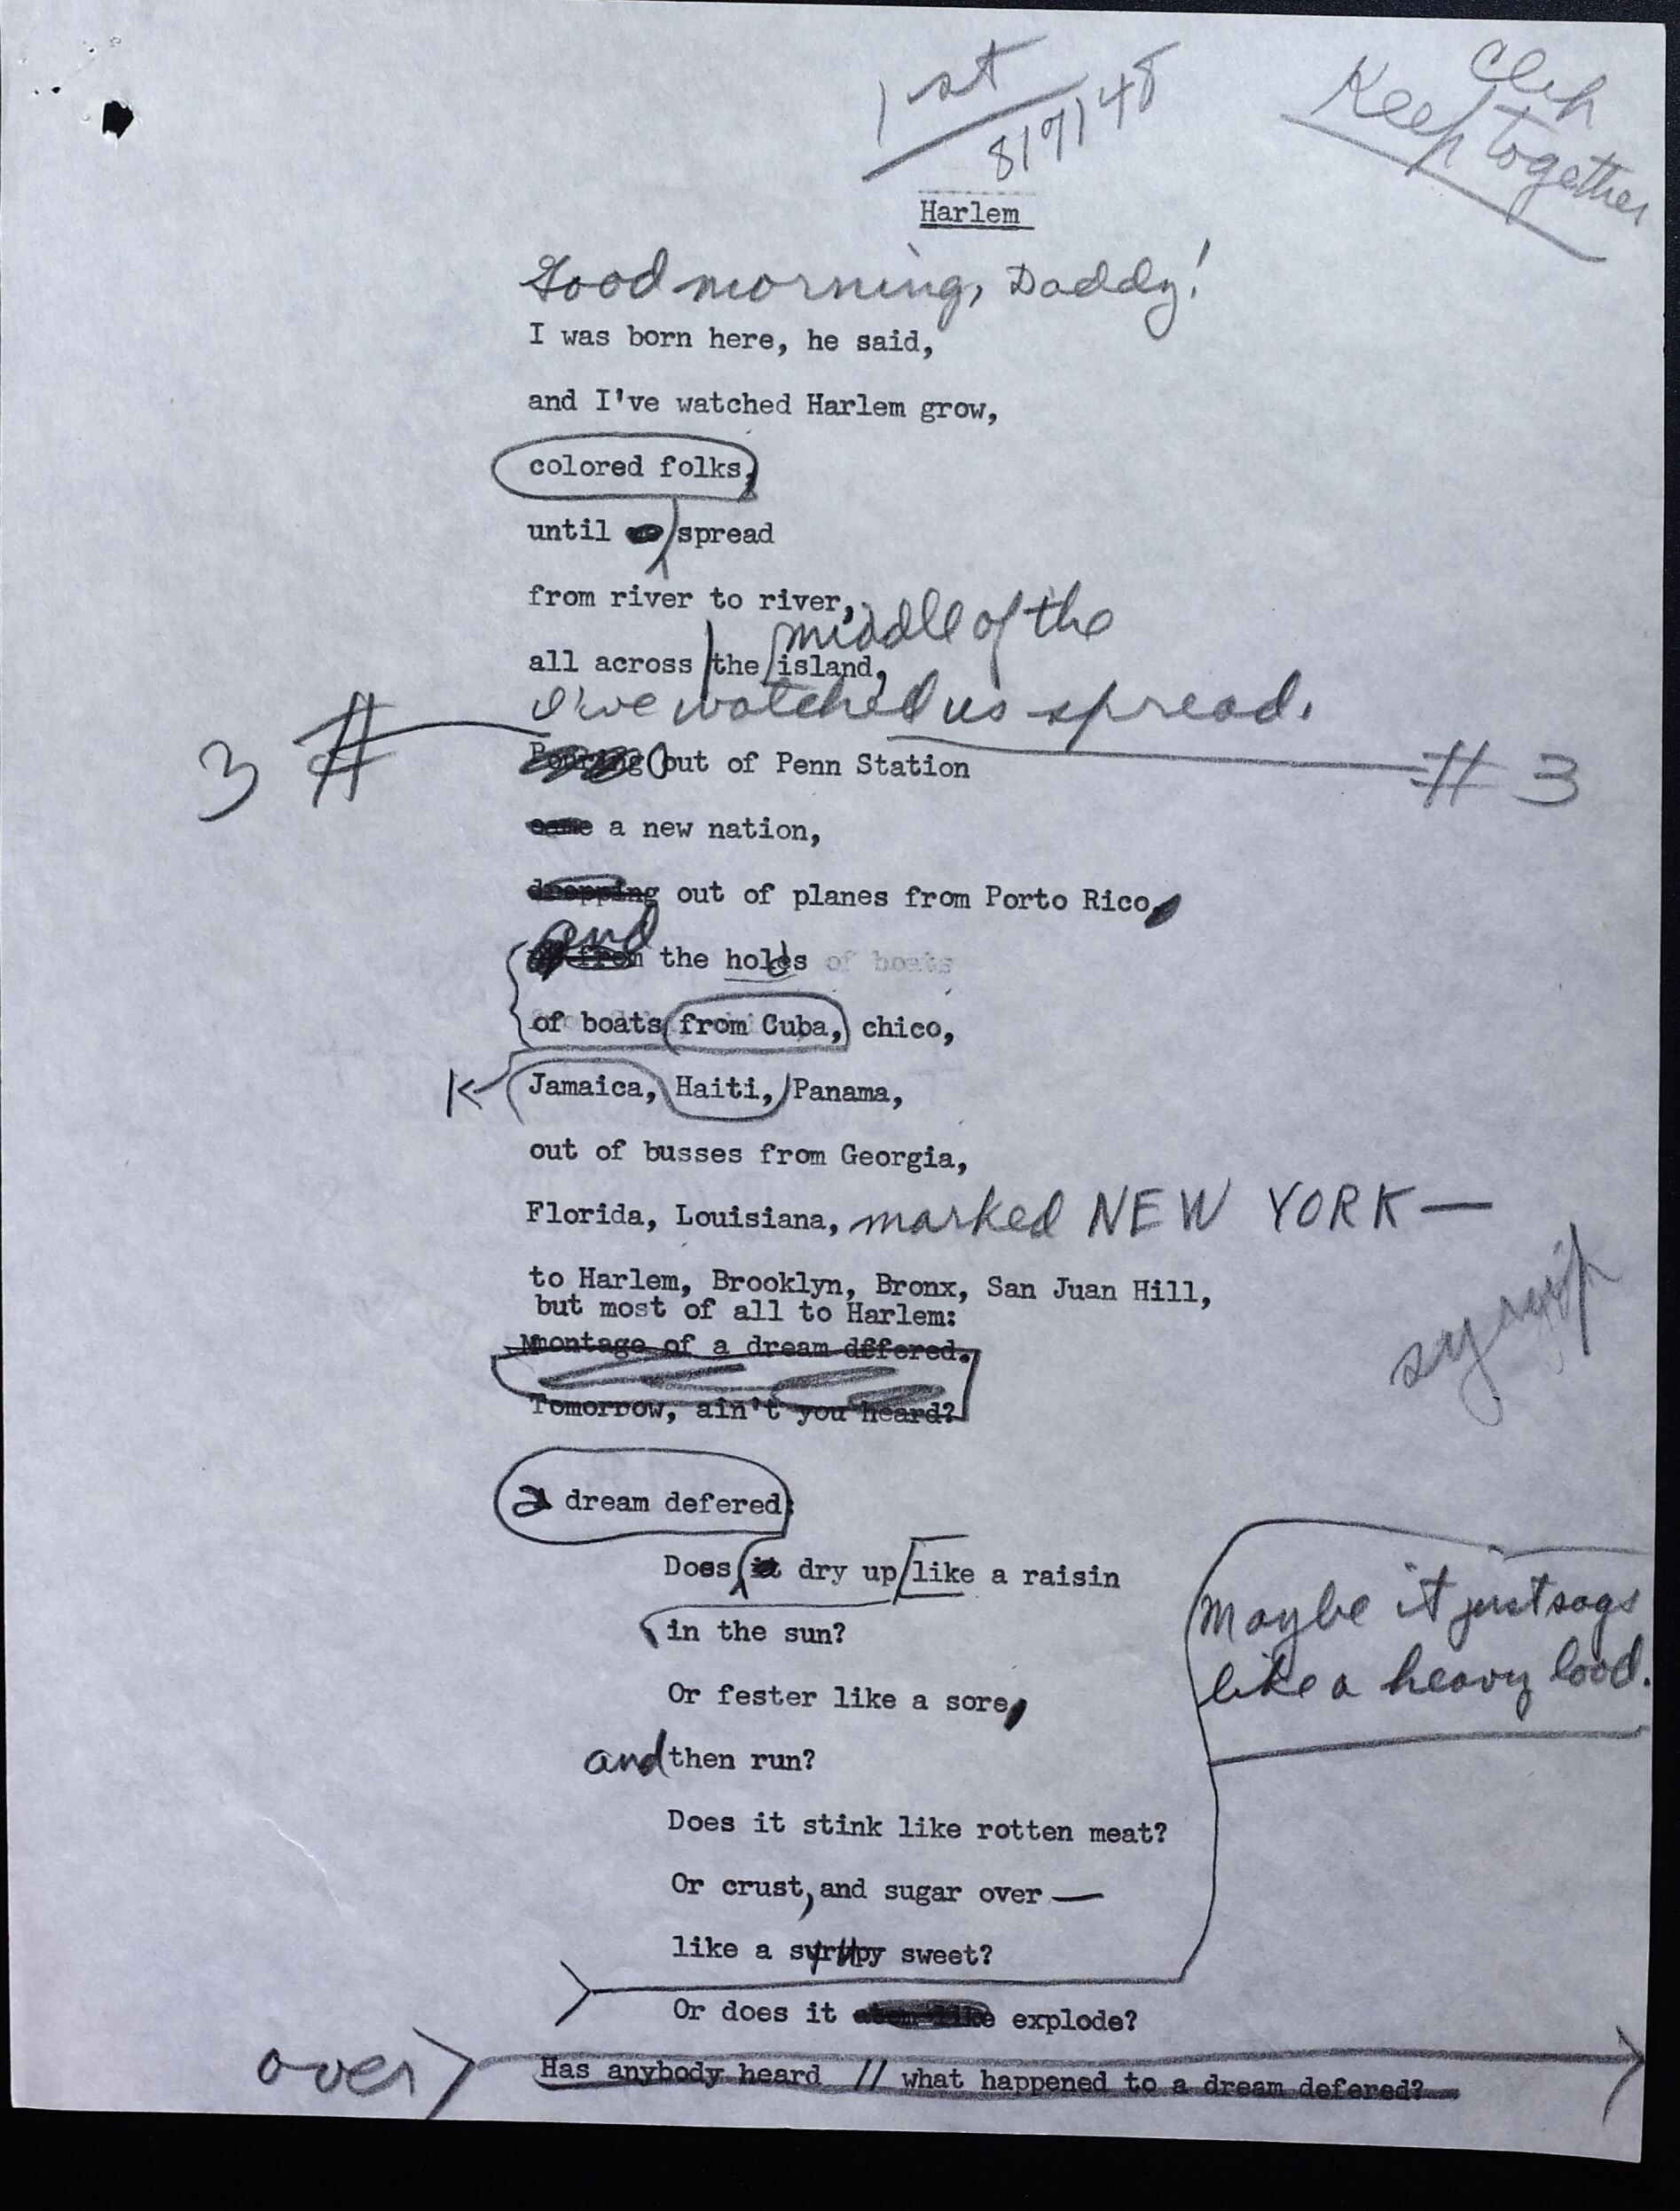 1st
8/7/48
Clip
Keep together
Harlem
Good morning, Daddy!
I was born here, he said,
and I've watched Harlem grow,
colored folks,
until spread
from river to river,
middle of the
all across the island,
I've watched us spread.
3 # # 3
Pouring out of Penn Station
came a new nation,
dropping out of planes from Porto Rico,
and
from the holds of boats
of boats from Cuba, chico,
Jamaica, Haiti, Panama,
out of busses from Georgia,
Florida, Louisiana, marked NEW YORK—
to Harlem, Brooklyn, Bronx, San Juan Hill,
but most of all to Harlem:
Mmontage of a dream dffered.
Tomorrow, ain't you heard?
a dream defered:
Does it dry up like a raisin
in the sun?
Maybe it just sags
like a heavy load.
Or fester like a sore,
and then run?
Does it stink like rotten meat?
Or crust, and sugar over —
like a syrupy sweet?
Or does it atom-like explode?
over
Has anybody heard // what happened to a dream defered?